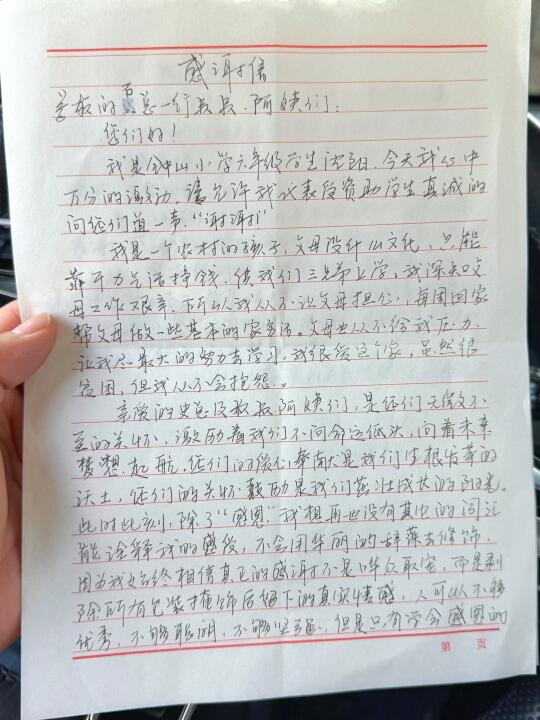 感谢信
尊敬的史总一行叔叔、阿姨们：
您们好！
我是钟山小学六年级学生沈阳，今天我心中
万分的激动，请允许我代表受资助学生真诚的
向您们道一声，“谢谢”
我是一个农村的孩子，父母没什么文化，只能
靠干力气活挣钱，供我们三兄弟上学，我深知父
母工作艰辛，所以我从不让父母担心，每周回家
帮父母做一些基本的家务活。父母也从不给我压力，
让我尽最大的努力去学习，我很爱这个家，虽然很
贫困，但我从不会抱怨。
亲爱的史总及叔叔阿姨们，是您们无微不
至的关怀，激励着我们不向命运低头，向着未来
梦想起航，您们的爱心奉献是我们生根发芽的
沃土，您们的关怀鼓励是我们茁壮成长的阳光。
此时此刻，除了“感恩”我想再也没有其他的词汇
能诠释我的感受，不会用华丽的辞藻去修饰，
因为我始终相信真正的感谢不是哗众取宠，而是剥
除所有包装掩饰后留下的真实情感，人可以不够
优秀，不够聪明，不够坚强，但是只有学会感恩的
第 页